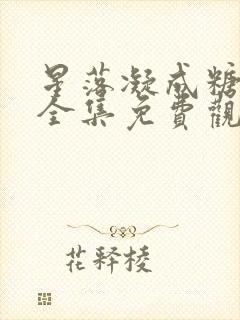 星落凝成糖
全集免費觀
花释棱